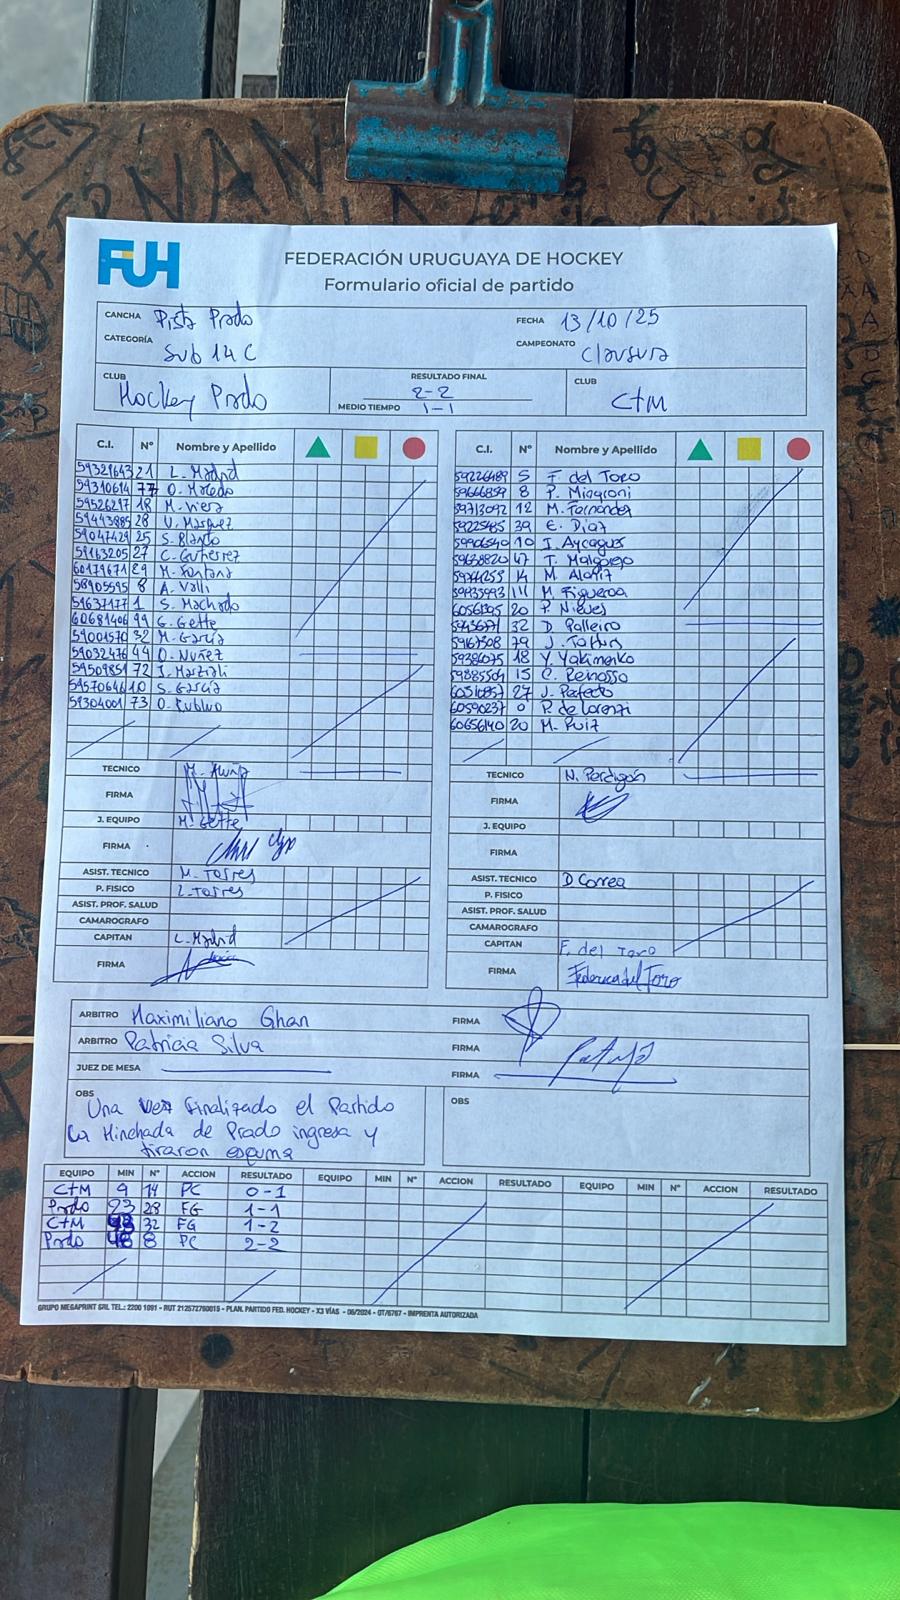 FUH
FEDERACIÓN URUGUAYA DE HOCKEY
Formulario oficial de partido
CANCHA Pista Prado FECHA 13/10/25
CATEGORÍA Sub 14 C CAMPEONATO Clausura
CLUB Hockey Prado RESULTADO FINAL 2-2 CLUB C+M
MEDIO TIEMPO 1-1
C.I. Nº Nombre y Apellido
59321643 21 L. Madrid
59310614 77 O. Moledo
59526217 18 M. Viera
59443885 28 V. Marquez
59047429 25 S. Blanco
59163205 27 C. Gutierrez
60179671 29 M. Fontana
58905595 8 A. Valli
51637177 1 S. Machado
60681406 99 G. Gette
59001570 32 M. Garcia
59032476 44 O. Nuñez
59509851 72 I.
59570646 10 S. Garcia
59304001 73 O.
TECNICO M.
FIRMA
J. EQUIPO M. Gette
FIRMA
ASIST. TECNICO M. Torres
P. FISICO L. Torres
ASIST. PROF. SALUD
CAMAROGRAFO
CAPITAN L. Madrid
FIRMA
C.I. Nº Nombre y Apellido
59226489 5 F. del Toro
59666859 8 P. Mingroni
59713092 12 M. Fernandez
59225485 39 E. Diaz
59906540 10 I. Aycaguer
59638820 47 T. Malgarejo
14 M. Alaniz
111 M. Figueroa
20 P. Nieves
32 D. Palleiro
59167308 79 J.
59386075 18 Y. Yakimenko
59885509 15 C. Reinosso
27 J. Perfecto
60590237 0 P. de Lorenzi
60656140 20 M. Ruiz
TECNICO N. Perdigón
FIRMA
J. EQUIPO
FIRMA
ASIST. TECNICO D Correa
P. FISICO
ASIST. PROF. SALUD
CAMAROGRAFO
CAPITAN F. del Toro
FIRMA Federica del Toro
ARBITRO Maximiliano Ghan FIRMA
ARBITRO Patricia Silva FIRMA
JUEZ DE MESA FIRMA
OBS
Una vez finalizado el Partido
la Hinchada de Prado ingresa y
tiraron espuma
OBS
EQUIPO MIN Nº ACCION RESULTADO EQUIPO MIN Nº ACCION RESULTADO EQUIPO MIN Nº ACCION RESULTADO
C+M 9 14 PC 0-1
Prado 23 28 FG 1-1
C+M 32 FG 1-2
Prado 8 PC 2-2
GRUPO MEGAPRINT SRL TEL.: 2200 1091 - RUT 212572760015 - PLAN. PARTIDO FED. HOCKEY - X3 VÍAS - 06/2024 - OT/6767 - IMPRENTA AUTORIZADA